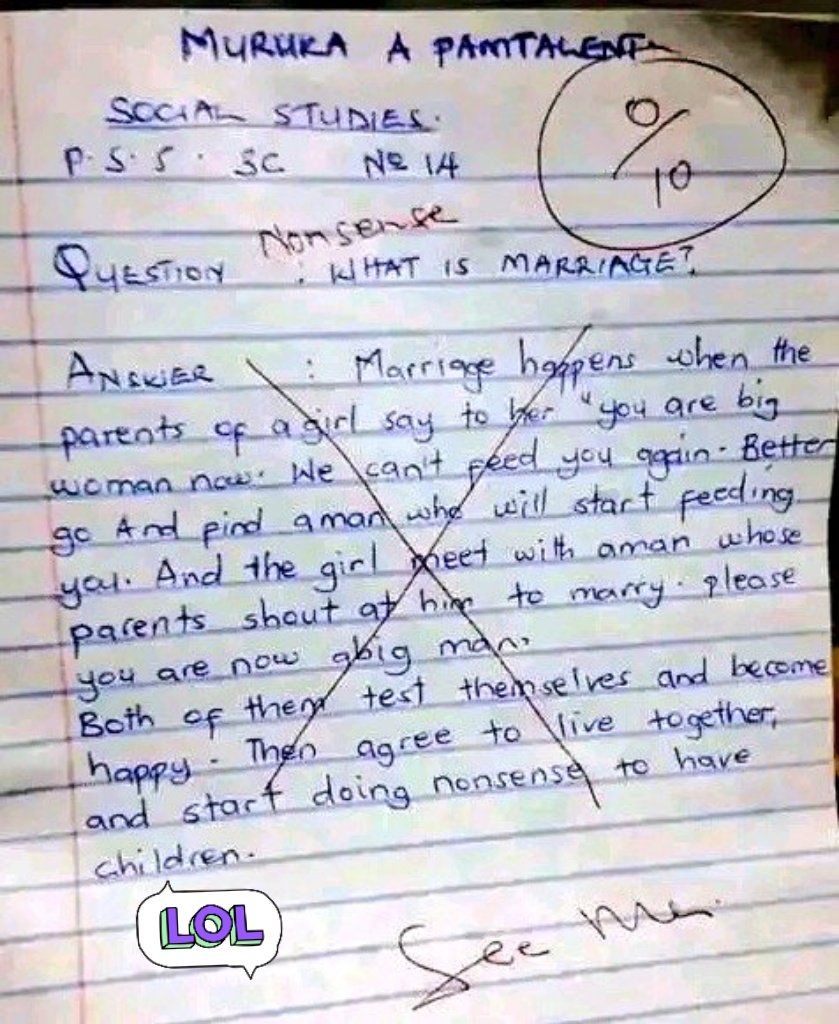 MURUKA A PAMTALENT
SOCIAL STUDIES.
P.S.S. 3C No 14
0/10
Nonsense
QUESTION : WHAT IS MARRIAGE?
ANSWER : Marriage happens when the
parents of a girl say to her "you are big
woman now. We can't feed you again. Better
go And find aman who will start feeding
you. And the girl meet with aman whose
parents shout at him to marry. please
you are now abig man.
Both of them test themselves and become
happy. Then agree to live together,
and start doing nonsense to have
children.
LOL
See Me.